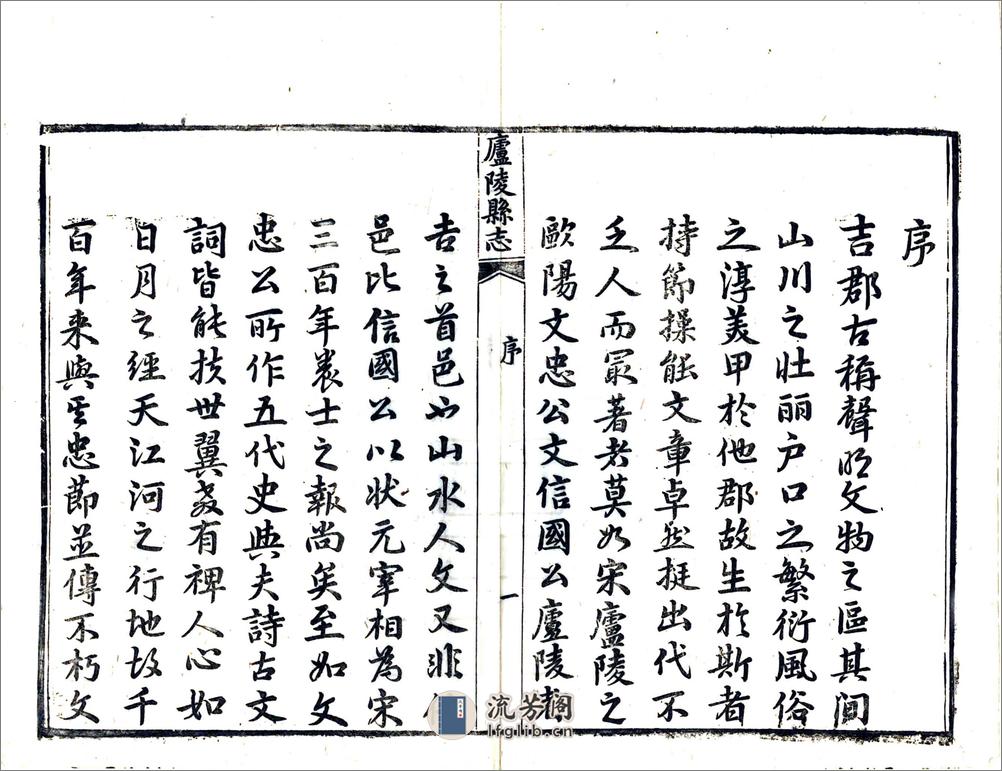 序
吉郡古稱聲明文物之區其间
山川之壮丽户口之繁衍風俗
之淳美甲於他郡故生於斯者
持節操能文章卓然挺出代不
乏人而最著者莫如宋廬陵之
歐陽文忠公文信國公廬陵
廬陵縣志
序
一
吉之首邑山水人文又非
邑比信國公以状元宰相為宋
三百年养士之報尚矣至如文
忠公所作五代史與夫詩古文
詞皆能扶世翼教有裨人心如
日月之經天江河之行地故千
百年来與其忠節並傳不朽文
流芳阁
lfglib.cn